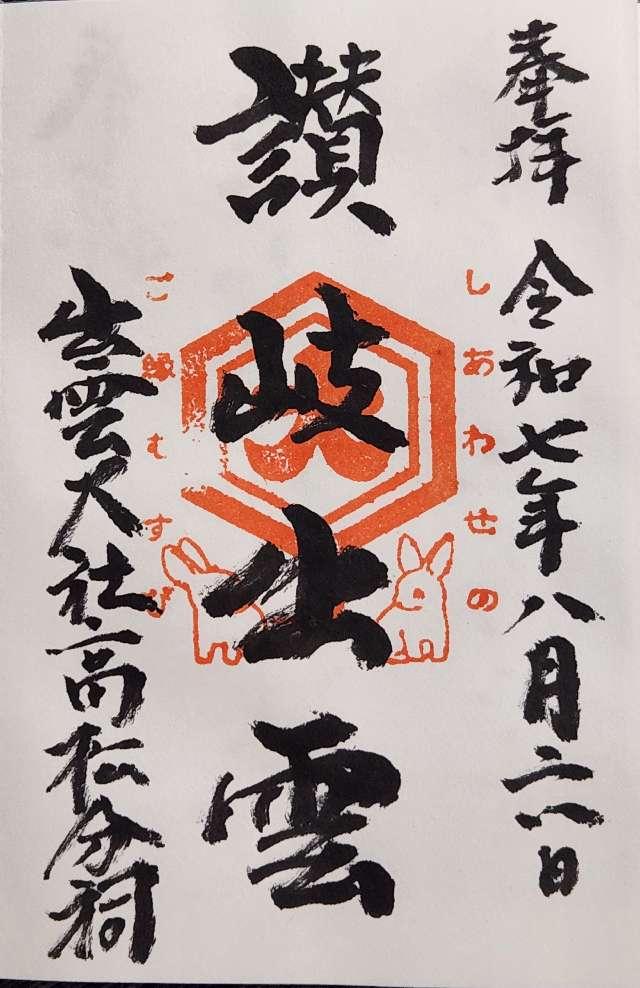 奉拝 令和七年八月六日
しあわせの
讃岐出雲
ご縁むすび
出雲大社高松分祠